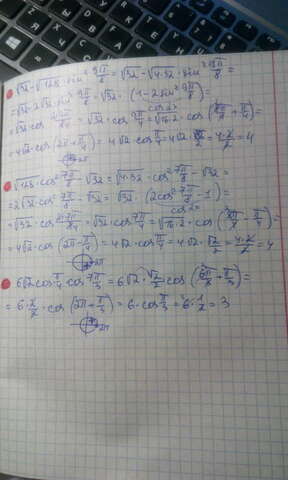 √32 - √128 · sin² 9π/8 = √32 - √4·32 · sin² 9π/8 =
= √32 - 2√32 sin² 9π/8 = √32 · (1 - 2sin² 9π/8) =
cos2α
= √32 cos 2·9π/8 = √32 · cos 9π/4 = √16·2 · cos (8π/4 + π/4) =
= 4√2 · cos (2π + π/4) = 4√2 · cos π/4 = 4√2 · √2/2 = 4·2/2 = 4
2π
√128 · cos² 7π/8 - √32 = √4·32 · cos² 7π/8 - √32 =
= 2√32 cos² 7π/8 - √32 = √32 · (2cos² 7π/8 - 1) =
cos2α
= √32 · cos 2·7π/8 = √32 · cos 7π/4 = √16·2 · cos (8π/4 - π/4) =
= 4√2 · cos (2π - π/4) = 4√2 · cos π/4 = 4√2 · √2/2 = 4·2/2 = 4
2π
6√2 cos π/4 cos 7π/3 = 6√2 · √2/2 cos (6π/3 + π/3) =
= 6 · 2/2 · cos (2π + π/3) = 6 · cos π/3 = 6 · 1/2 = 3
2π